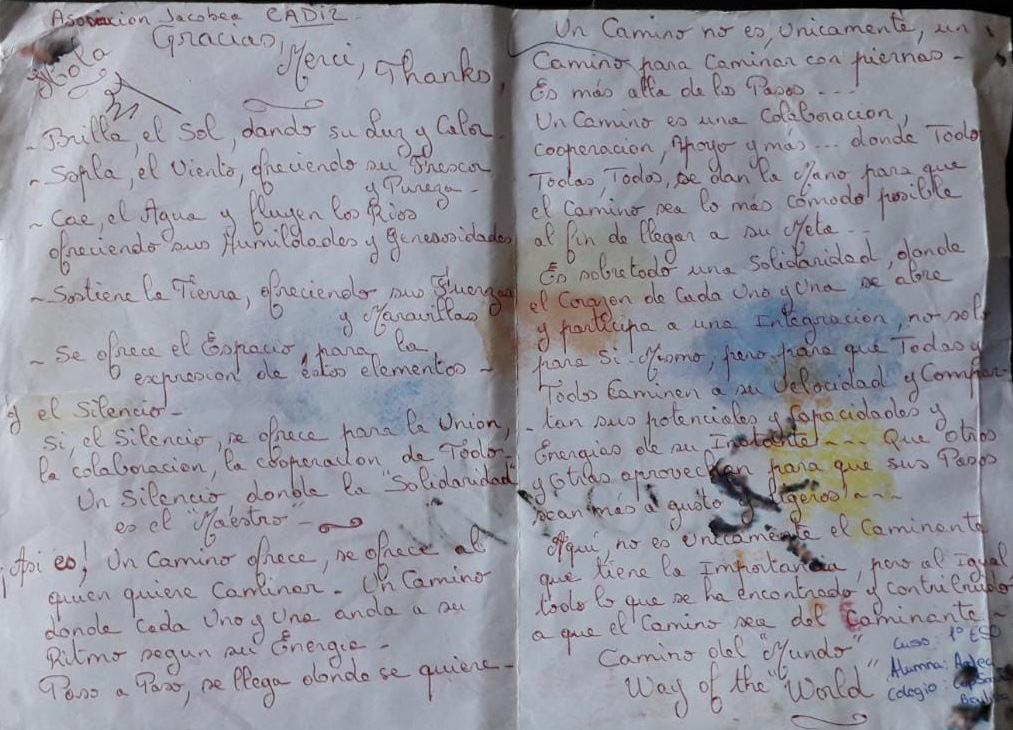 Asociacion Jacobea CADIZ
Gracias,
Hola
Merci, Thanks,
- Brilla, el Sol, dando su Luz y Calor -
- Sopla, el Viento, ofreciendo su Frescor
y Pureza -
- Cae, el Agua y fluyen los Rios
ofreciendo sus Humildades y generosidades
- Sostiene la Tierra, ofreciendo sus Fuerzas
y Maravillas
- Se ofrece el Espacio, para la
expresion de estos elementos -
y el Silencio -
Si, el Silencio, se ofrece para la Union,
la colaboracion, la cooperacion de Todo -
Un Silencio donde la "Solidaridad"
es el "Maéstro" -
¡Asi es! Un Camino ofrece, se ofrece al
quien quiere Caminar - Un Camino
donde Cada Uno y Una anda a su
Ritmo segun su Energia -
Paso a Paso, se llega donde se quiere -
Un Camino no es, Unicamente, un
Camino para Caminar con piernas -
Es más alla de los Pasos ---
Un Camino es una Colaboracion,
Cooperacion, Apoyo y más ... donde Todo
Todas, Todos, se dan la Mano para que
el Camino sea lo más cómodo posible
al fin de llegar a su Meta --
Es sobretodo una Solidaridad, donde
el Corazon de Cada Uno y Una se abre
y participa a una Integracion, no solo
para Si-Mismo, pero para que Todas y
Todos Caminen a su Velocidad y Compar-
-tan sus potenciales y Capacidades y
Energias de su Instante --- Que Otros
y Otras aprovechan para que sus Pasos
sean más a gusto y ligeros --
Aqui, no es Unicamente el Caminante
que tiene la Importancia, pero al Igual
todo lo que se ha encontrado y contribuido
a que el Camino sea del Caminante -
Camino del "Mundo"
Way of the "World"
Curso: 1º ESO
Alumna:
Colegio: